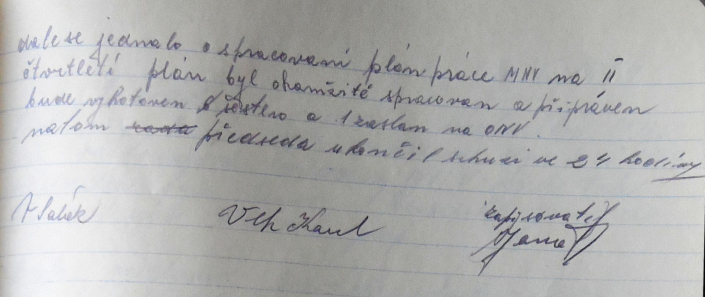 dale se jednalo o spracovaní plán práce MNV na II
čtvrtletí plán byl okamžitě spracovan a připráven
bude vyhotoven šestero a 1 zaslan na ONV.
natom předseda ukončil schuzi ve 24 hodiny
Vlk Karel
zapisovatel